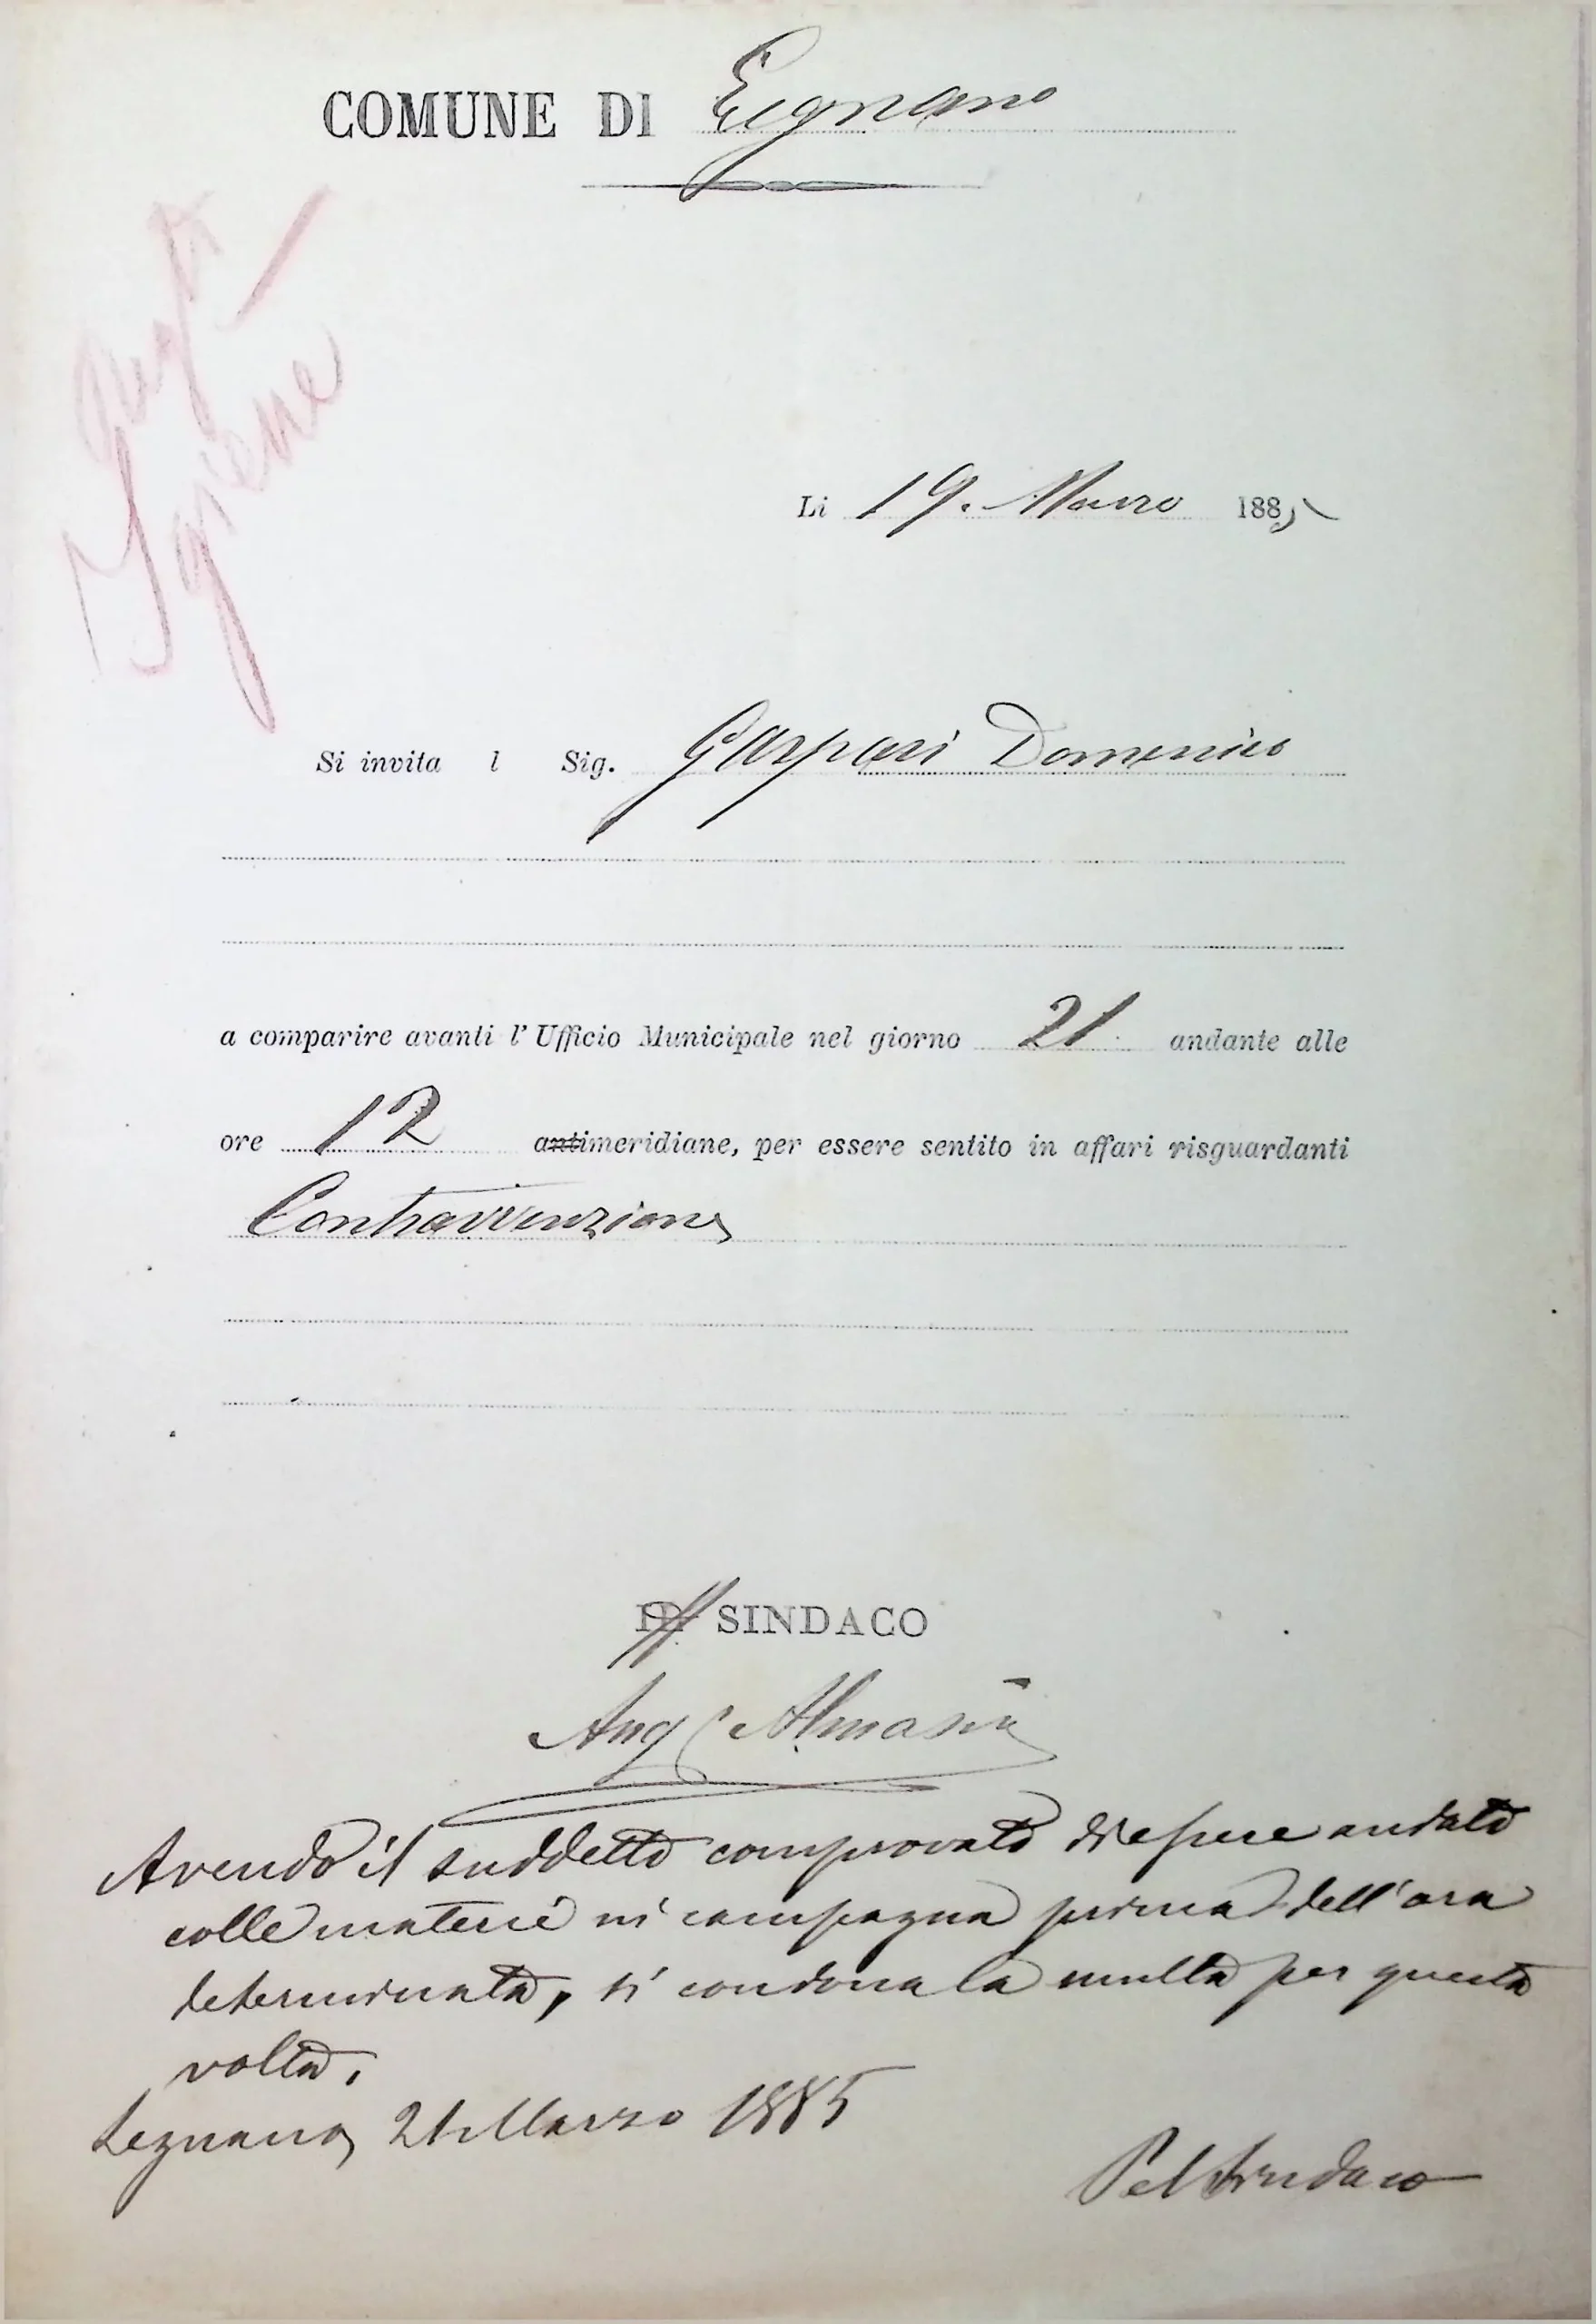 COMUNE DI Legnano
Igiene
Li 19. Marzo 1885
Si invita l Sig. Gaspari Domenico
a comparire avanti l' Ufficio Municipale nel giorno 21 andante alle
ore 12 antimeridiane, per essere sentito in affari risguardanti
Contravvenzione
SINDACO
Ang Almasio
Avendo il suddetto comprovato di essere andato
colle materie in campagna prima dell'ora
determinata, si condona la multa per questa
volta.
Legnano, 21 Marzo 1885
Pel Sindaco